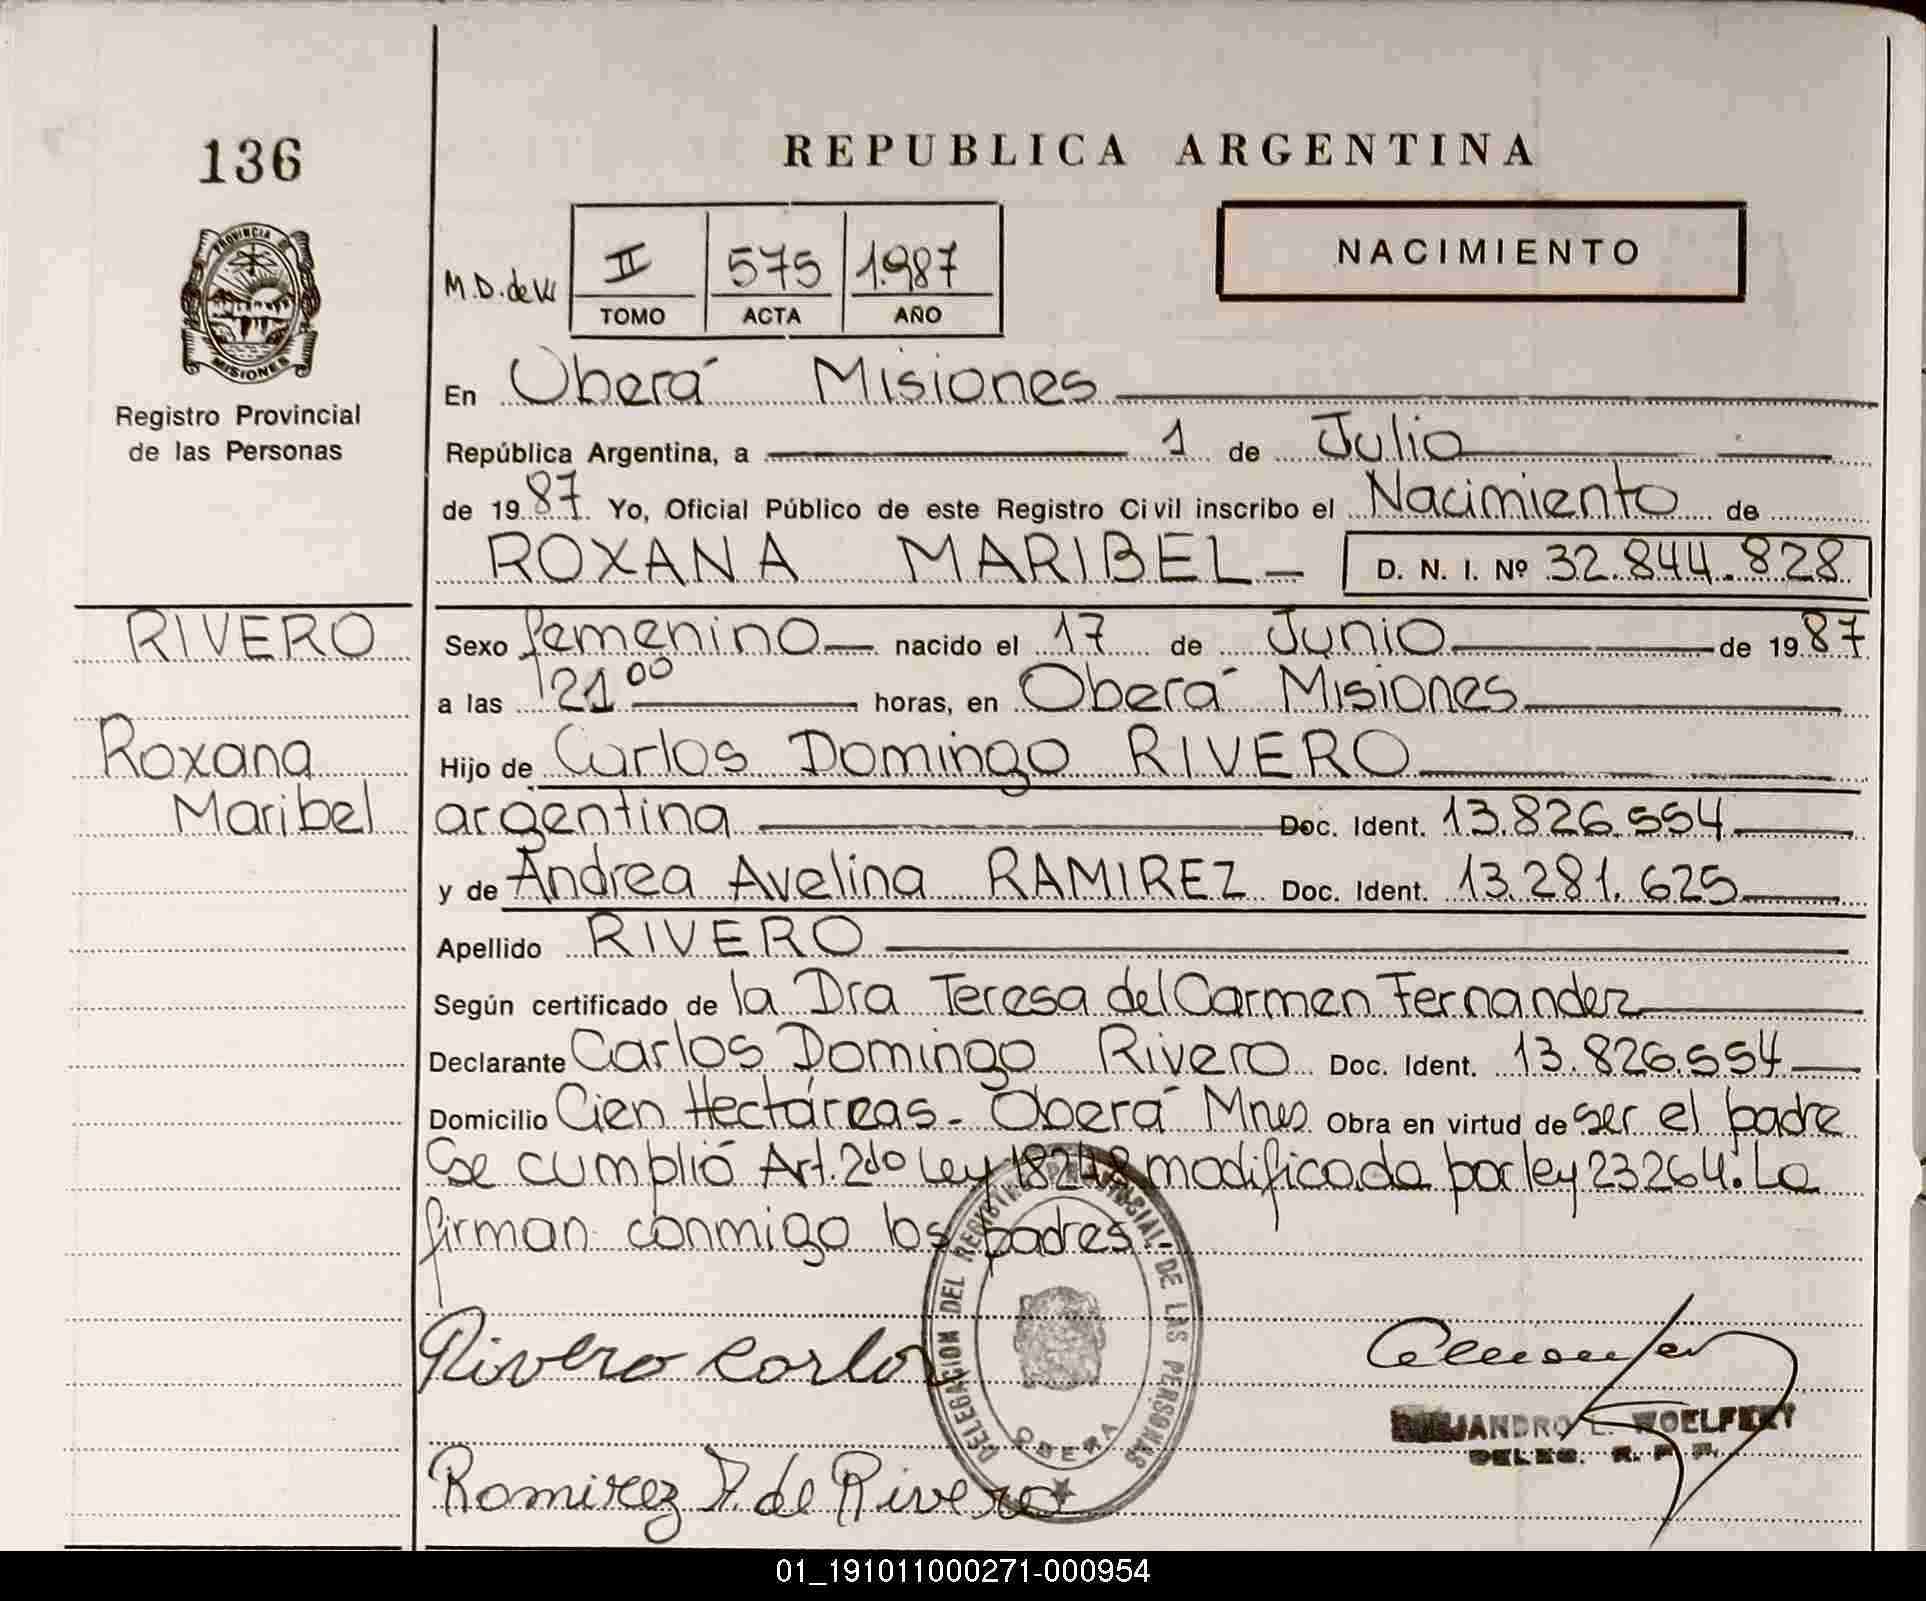 136
REPUBLICA ARGENTINA
NACIMIENTO
M.D. de
II 575 1.987
TOMO ACTA AÑO
PROVINCIA DE
MISIONES
Registro Provincial
de las Personas
En Oberá Misiones
República Argentina, a 1 de Julio
de 1987. Yo, Oficial Público de este Registro Civil inscribo el Nacimiento de
ROXANA MARIBEL - D. N. I. Nº 32.844.828
RIVERO
Roxana
Maribel
Sexo femenino nacido el 17 de Junio de 1987
a las 21 00 horas, en Oberá Misiones
Hijo de Carlos Domingo RIVERO
argentina Doc. Ident. 13.826.554
y de Andrea Avelina RAMIREZ Doc. Ident. 13.281.625
Apellido RIVERO
Según certificado de la Dra Teresa del Carmen Fernandez
Declarante Carlos Domingo Rivero Doc. Ident. 13.826.554
Domicilio Cien Hectáreas - Oberá Mnes Obra en virtud de ser el padre
Se cumplió Art. 2do Ley 18248 modificada por ley 23264. La
firman conmigo los padres.-
DELEGACION DEL REGISTRO PROVINCIAL DE LAS PERSONAS
OBERA
Rivero Carlos
ALEJANDRO E. WOELFERT
DELEG. R. P. P.
Ramirez A. de Rivero
01_191011000271-000954